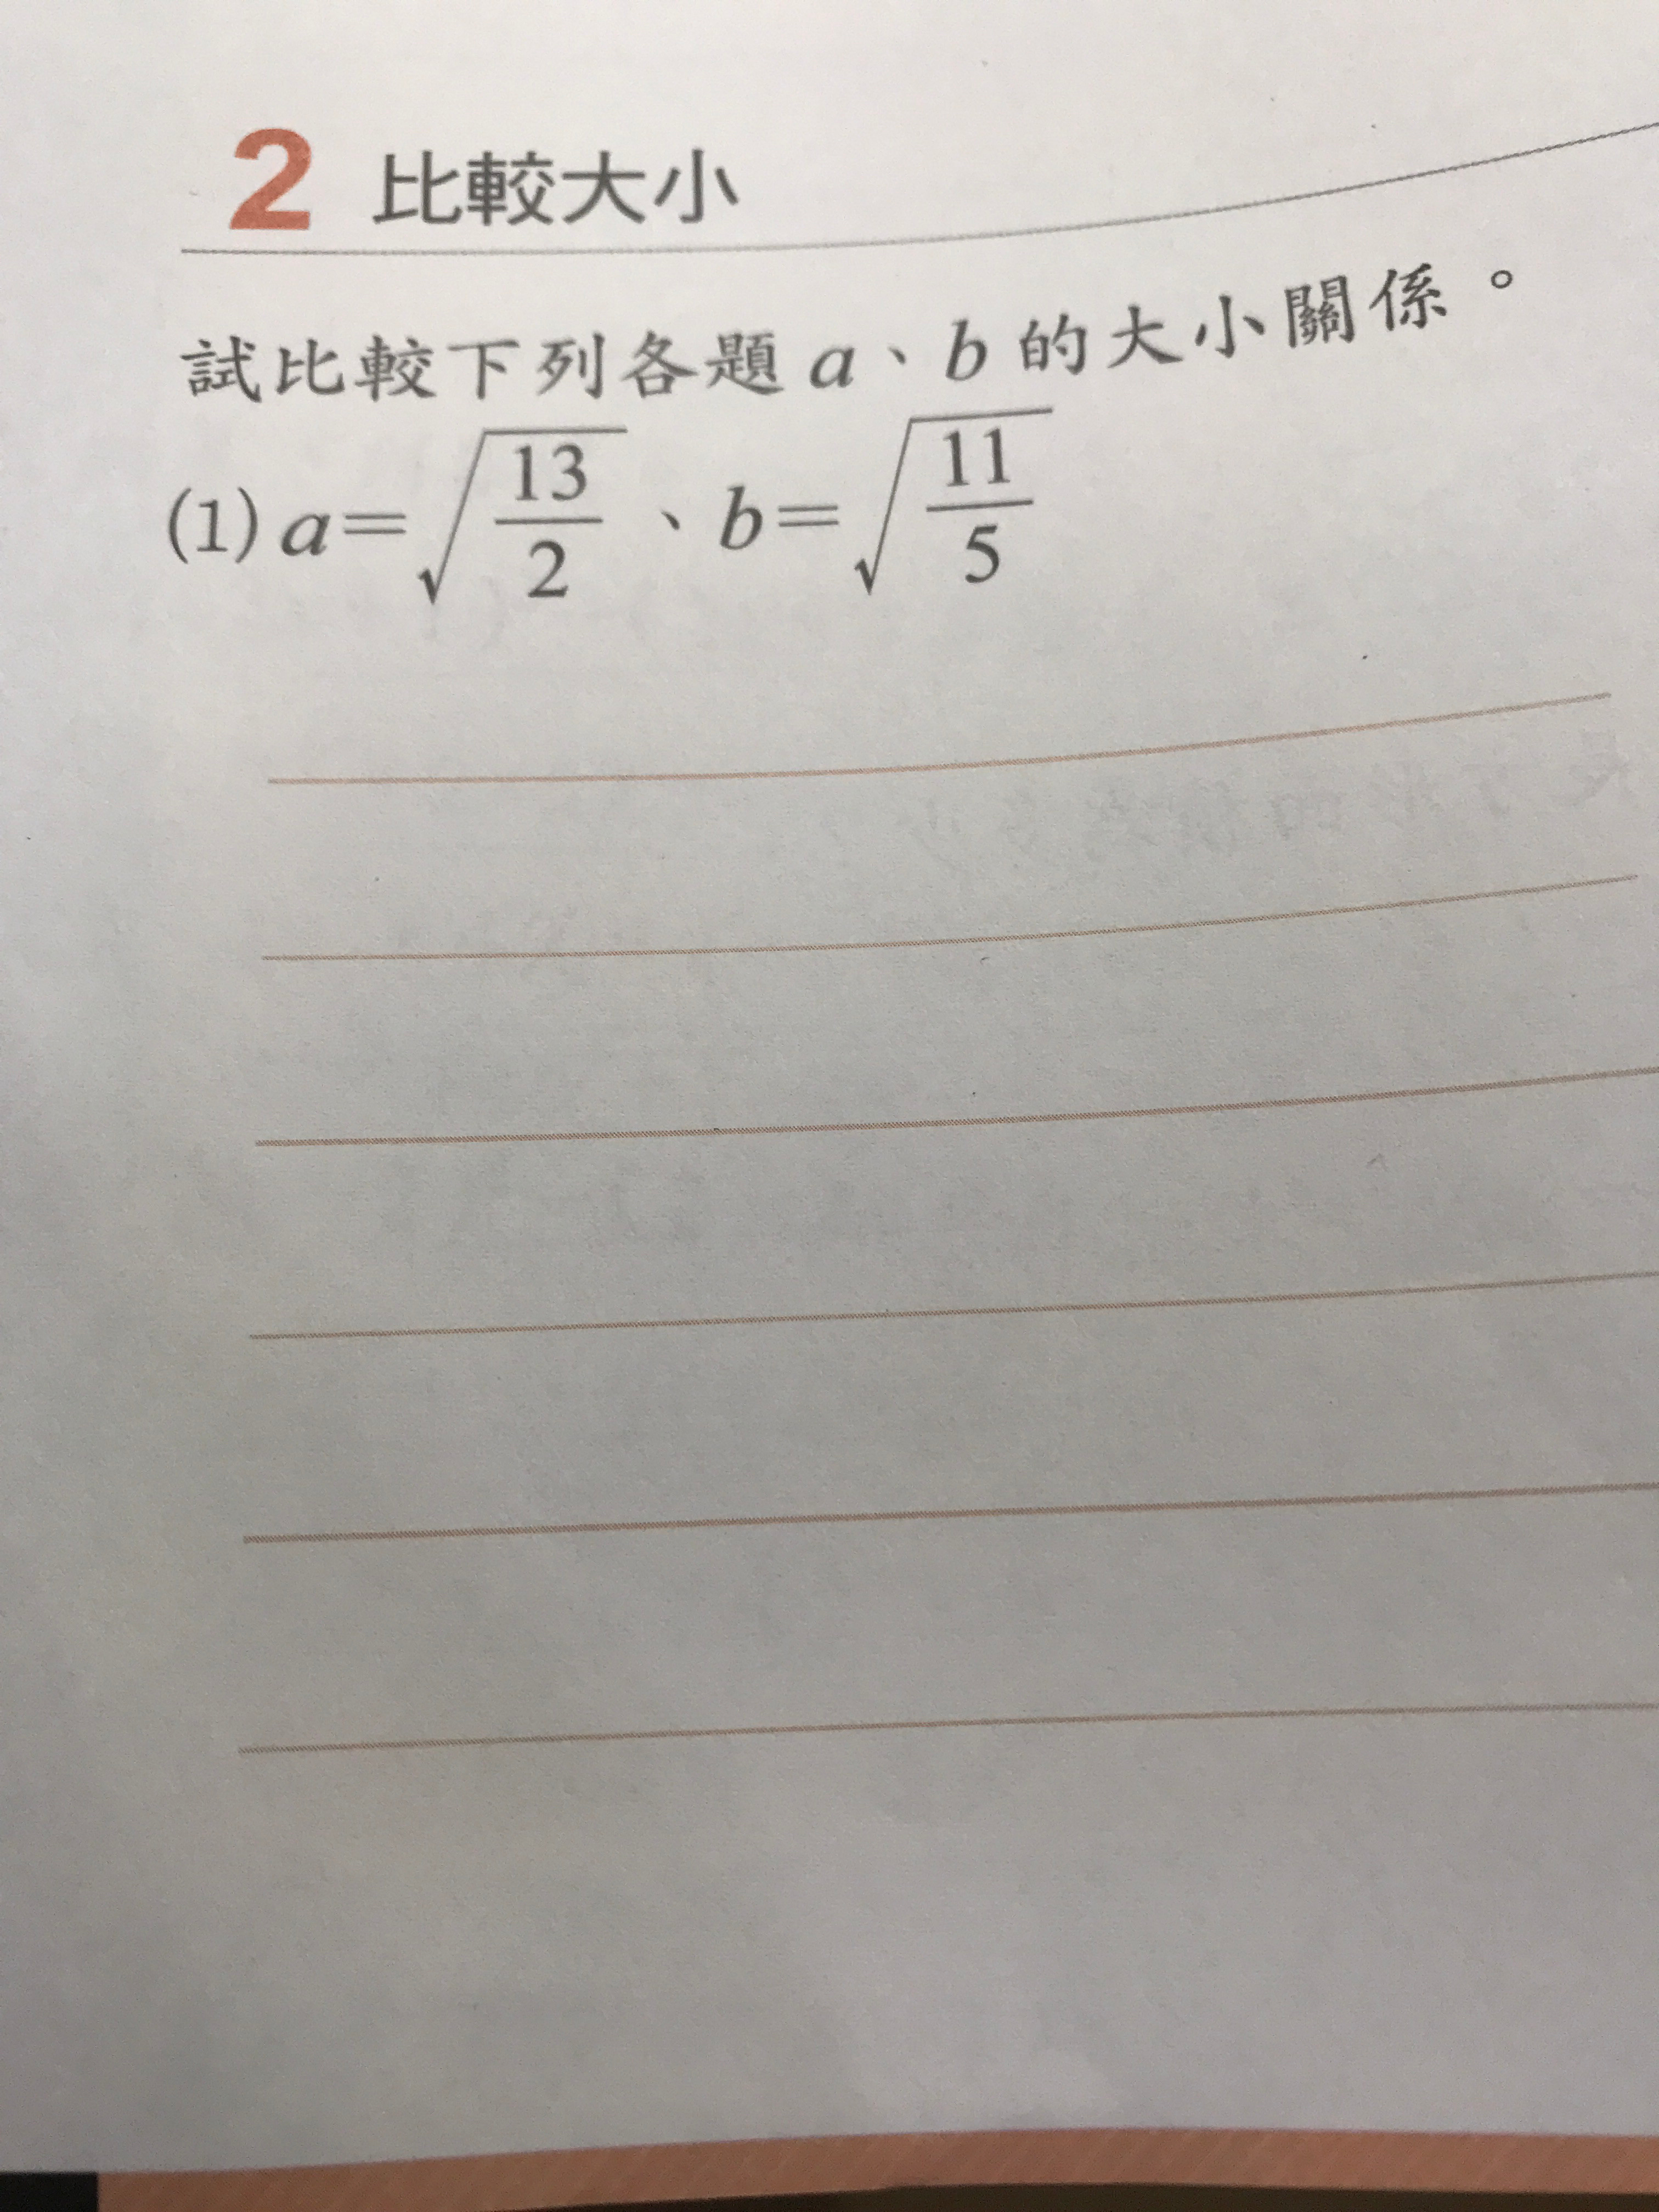 2 比較大小
試比較下列各題 a、b 的大小關係。
(1) a=√(13/2)、b=√(11/5)